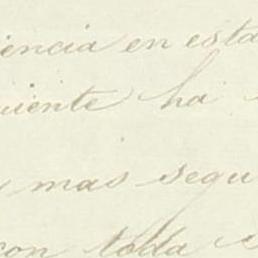 iencia en esta
uiente ha
mas segu
con toda